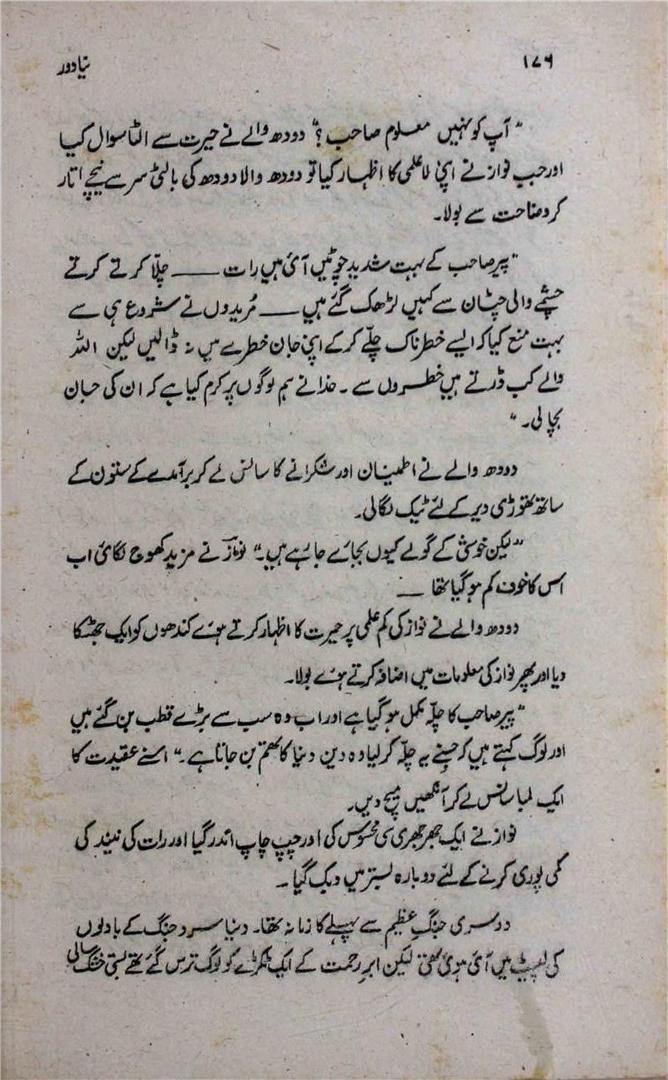 ۱۷۶
نیا دور
" آپ کو نہیں معلوم صاحب ؟" دودھ والے نے حیرت سے الٹا سوال کیا
اور جب نواز نے اپنی لاعلمی کا اظہار کیا تو دودھ والا دودھ کی بالٹی سر سے نیچے اتار
کر وضاحت سے بولا۔
" پیر صاحب کے بہت شدید چوٹیں آئی ہیں رات ــــــ چلّا کرتے کرتے
چشمے والی چٹان سے کہیں لڑھک گئے ہیں ــــــ مُریدوں نے شروع ہی سے
بہت منع کیا کہ ایسے خطرناک چلّے کر کے اپنی جان خطرے میں نہ ڈالیں لیکن اللہ
والے کب ڈرتے ہیں خطروں سے ۔ خدا نے ہم لوگوں پر کرم کیا ہے کہ ان کی جان
بچا لی۔ "
دودھ والے نے اطمینان اور شکرانے کا سانس لے کر برآمدے کے ستون کے
ساتھ تھوڑی دیر کے لئے ٹیک لگالی۔
" لیکن خوشی کے گولے کیوں بجائے جا رہے ہیں۔" نواز نے مزید کھوج لگائی اب
اس کا خوف کم ہو گیا تھا ــــ
دودھ والے نے نواز کی کم علمی پر حیرت کا اظہار کرتے ہوئے کندھوں کو ایک جھٹکا
دیا اور پھر نواز کی معلومات میں اضافہ کرتے ہوئے بولا۔
" پیر صاحب کا چلّہ مکمل ہو گیا ہے اور اب وہ سب سے بڑے قطب بن گئے ہیں
اور لوگ کہتے ہیں کہ جسنے یہ چلّہ کر لیا وہ دین دنیا کا تھم بن جاتا ہے ۔" اسنے عقیدت کا
ایک لمبا سانس لے کر آنکھیں میچ دیں۔
نواز نے ایک جھرجھری سی محسوس کی اور چپ چاپ اندر گیا اور رات کی نیند کی
کمی پوری کرنے کے لئے دوبارہ بستر میں دبک گیا ۔
دوسری جنگِ عظیم سے پہلے کا زمانہ تھا۔ دنیا سرد جنگ کے بادلوں
کی لپیٹ میں آئی ہوئی تھی لیکن ابرِ رحمت کے ایک ٹکڑے کو لوگ ترس گئے تھے بستی خشک سالی